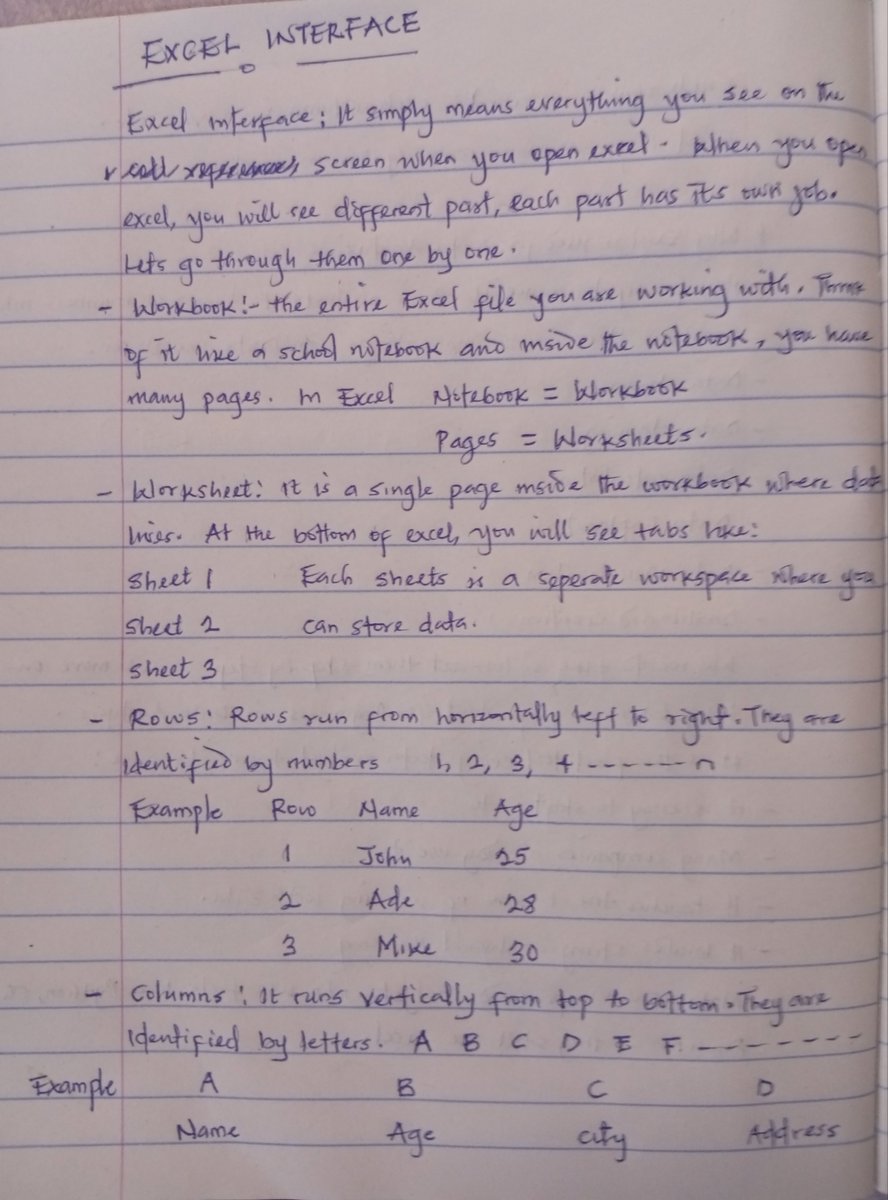 EXCEL INTERFACE
Excel interface: It simply means everything you see on the
screen when you open excel. When you open
excel, you will see different part, each part has its own job.
Lets go through them one by one.
- Workbook:- the entire Excel file you are working with. Think
of it like a school notebook and inside the notebook, you have
many pages. In Excel Notebook = Workbook
Pages = Worksheets.
- Worksheet: It is a single page inside the workbook where
At the bottom of excel, you will see tabs like:
Sheet 1 Each sheets is a seperate workspace where you
Sheet 2 can store data.
Sheet 3
- Rows: Rows run from horizontally left to right. They are
Identified by numbers 1, 2, 3, 4 ------- n
Example Row Name Age
1 John 25
2 Ade 28
3 Mike 30
- Columns: It runs vertically from top to bottom. They are
Identified by letters. A B C D E F --------
Example A B C D
Name Age city Address